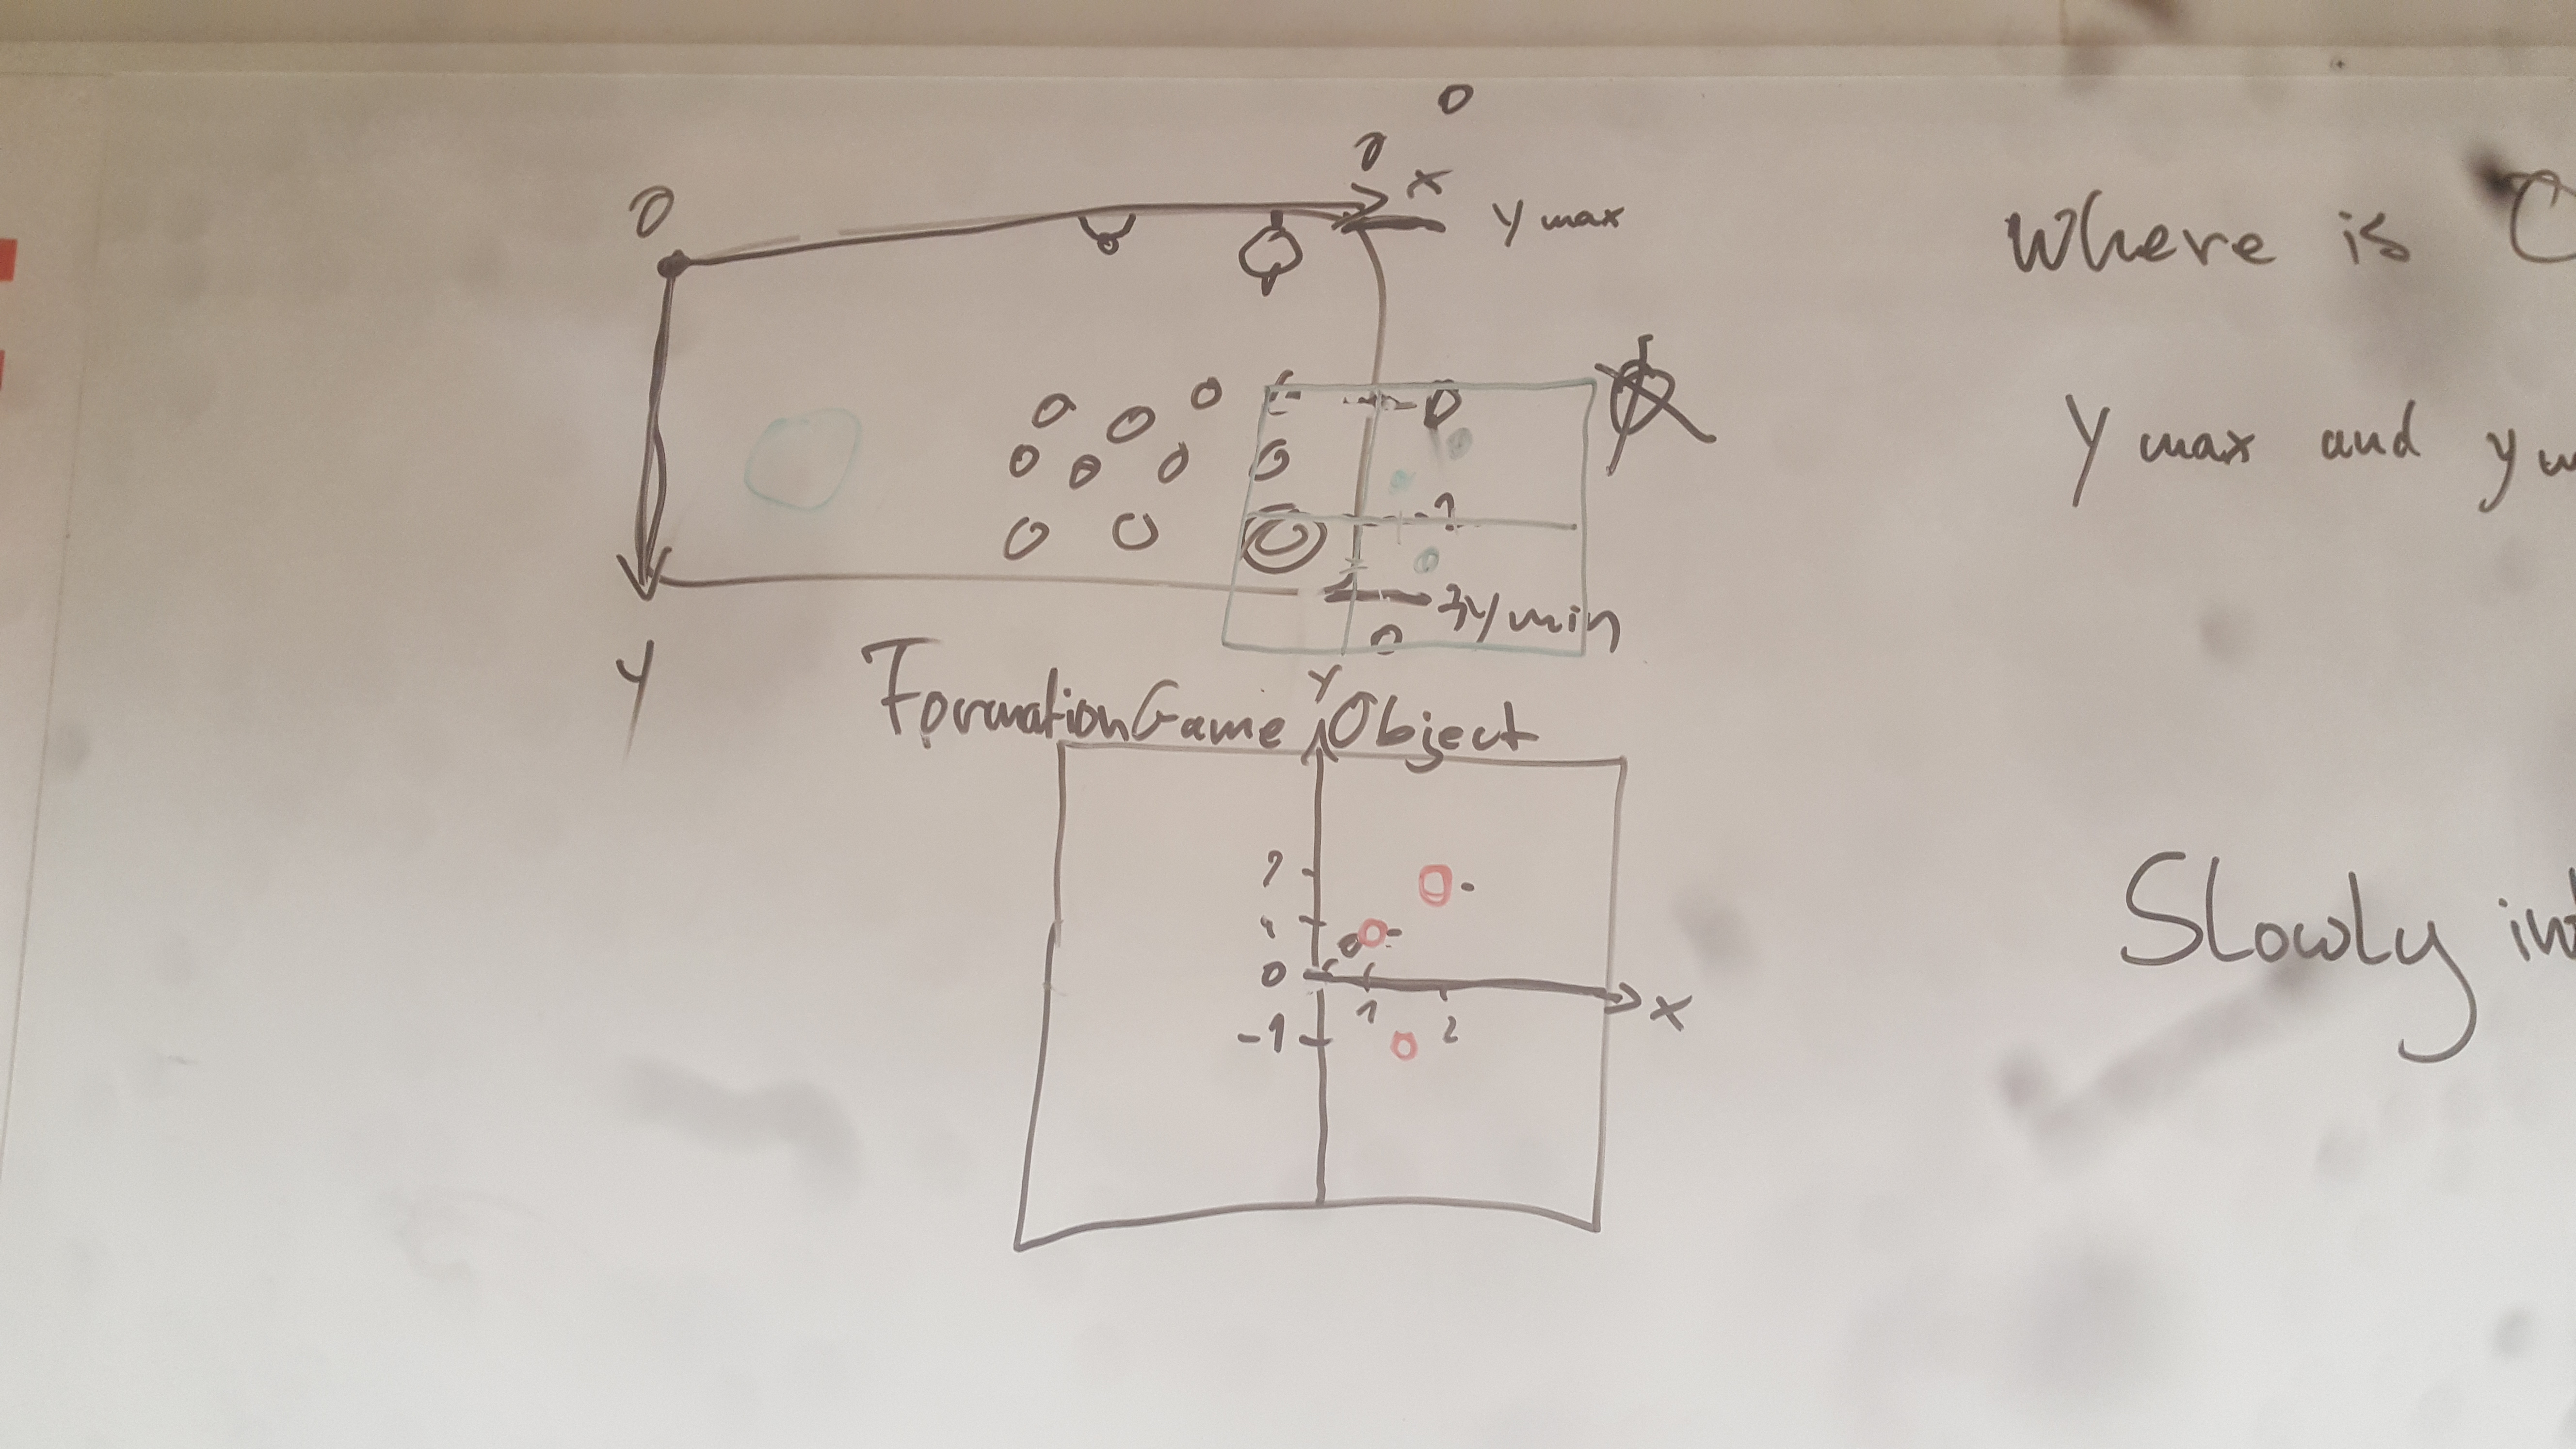 0
x
y max
Where is
y max and y
ymin
y
FormationGameObject
y
2
1
0
x
1
2
-1
Slowly in